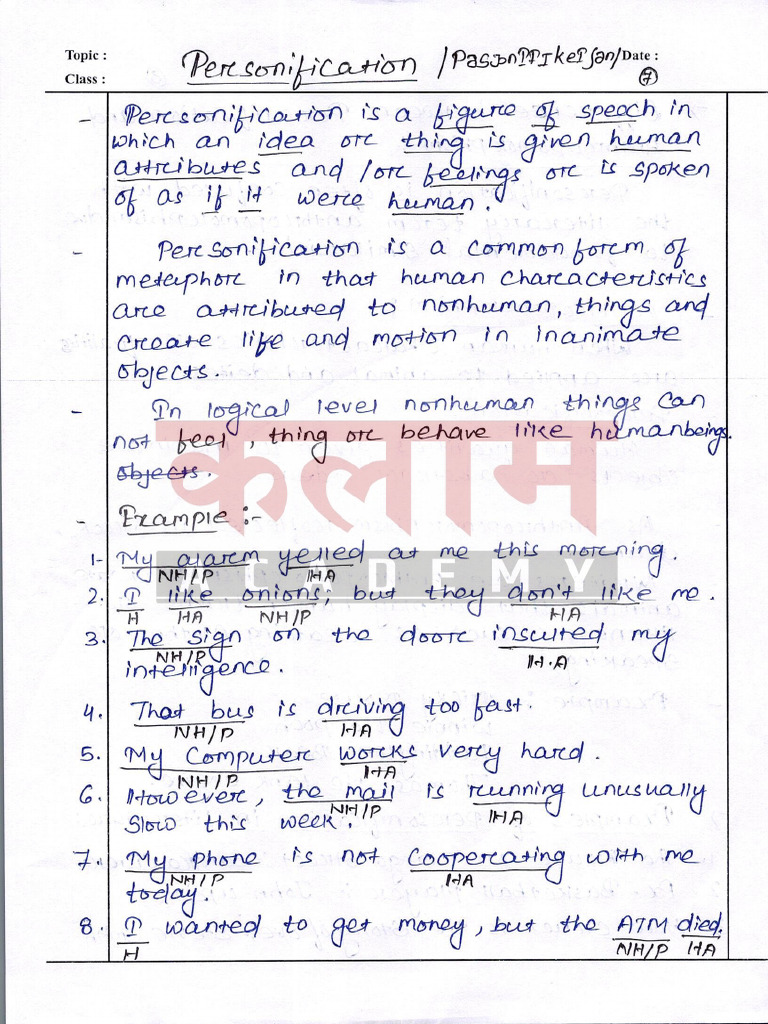 Topic :
Personification /Pasɔnɪfɪkeɪʃən/ Date :
Class :
7
- Personification is a figure of speech in
which an idea or thing is given human
attributes and /or feelings or is spoken
of as if it were human.
- Personification is a common form of
metaphor in that human characteristics
are attributed to nonhuman, things and
create life and motion in inanimate
objects.
- In logical level nonhuman things can
not feel, thing or behave like humanbeings.
objects.
कलाम
ACADEMY
- Example :-
1- My alarm yelled at me this morning.
NH/P HA
2. I like onions, but they don't like me.
H HA NH/P HA
3. The sign on the door insulted my
NH/P H.A
intelligence.
4. That bus is driving too fast.
NH/P HA
5. My Computer works very hard.
NH/P HA
6. However, the mail is running unusually
NH/P HA
Slow this week.
7. My phone is not cooperating with me
NH/P HA
today.
8. I wanted to get money, but the ATM died.
H NH/P HA